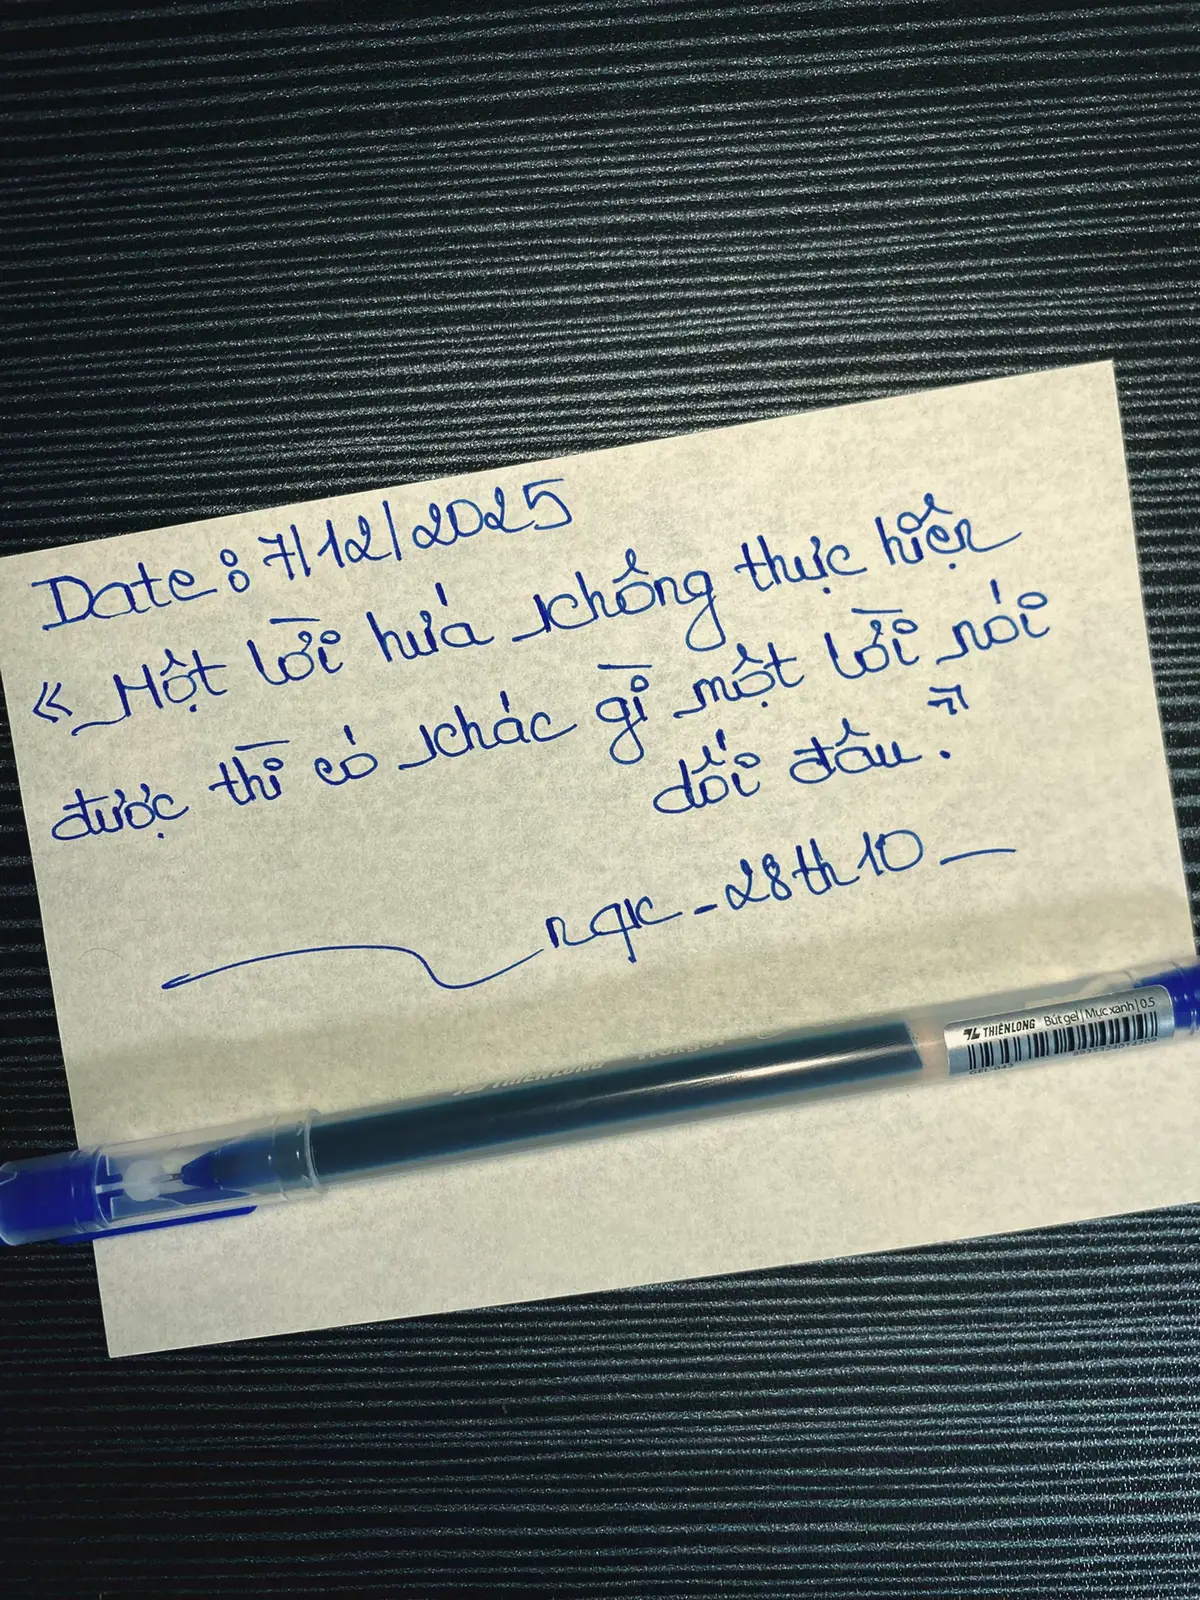 Date: 7/12/2025
« Một lời hứa không thực hiện
được thì có khác gì một lời nói
dối đâu. »
nqk - 28th10 —
THIÊN LONG Bút gel | Mực xanh | 0.5
GEL-043
THIÊN LONG